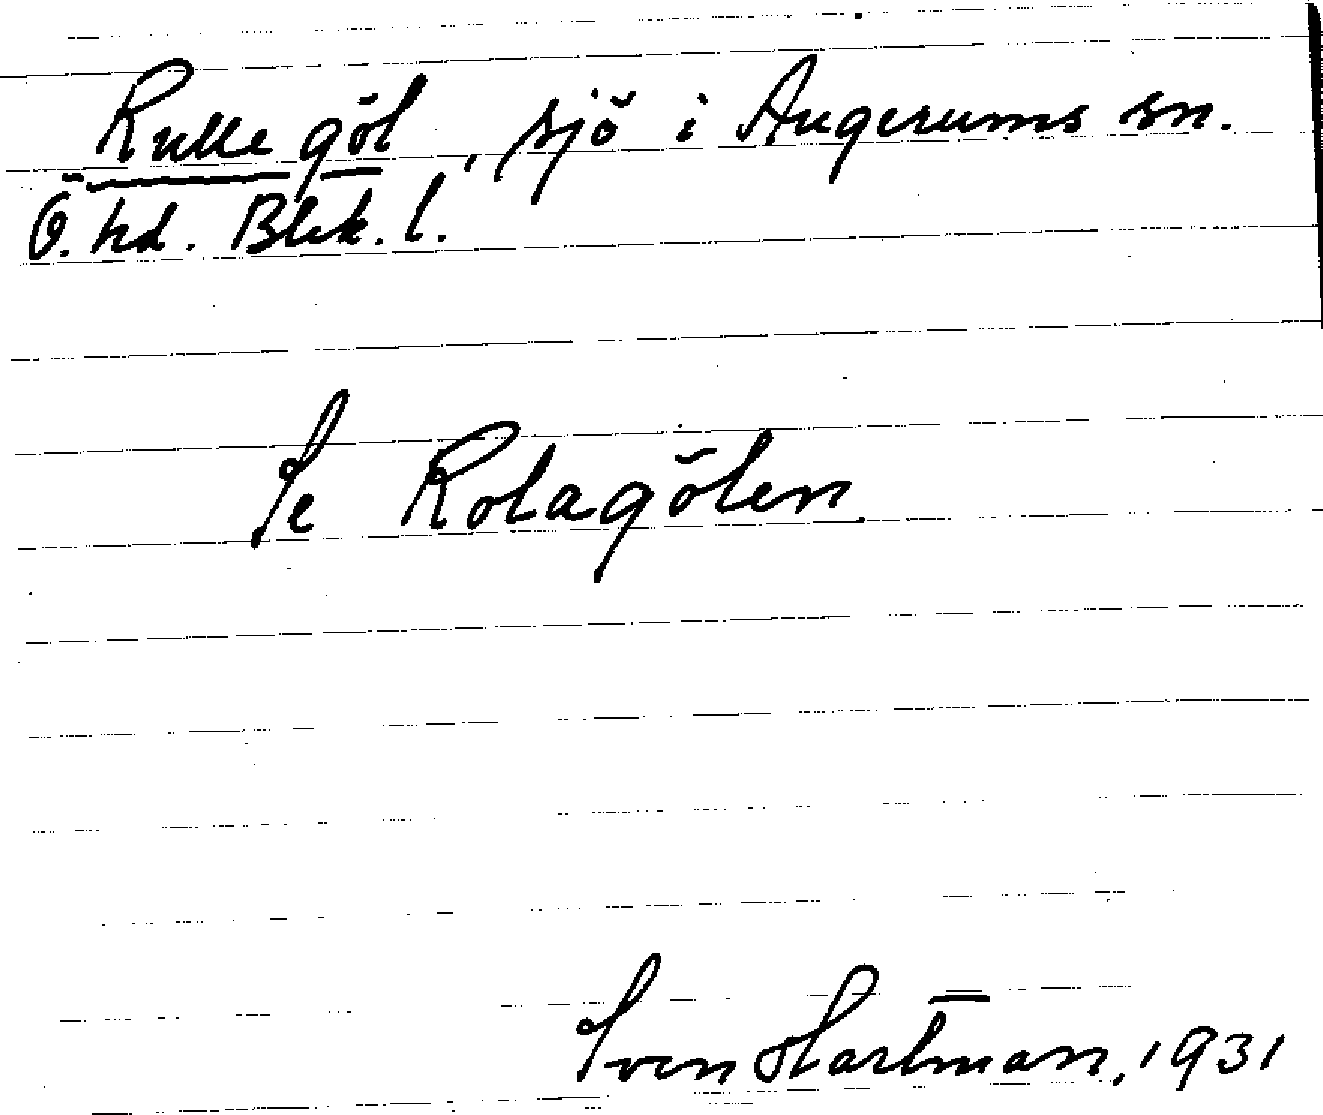 Rullegöl, sjö i Augerums sn.
Ö. hd. Blek. l.
Se Rolagölen
Sven Hartman, 1931